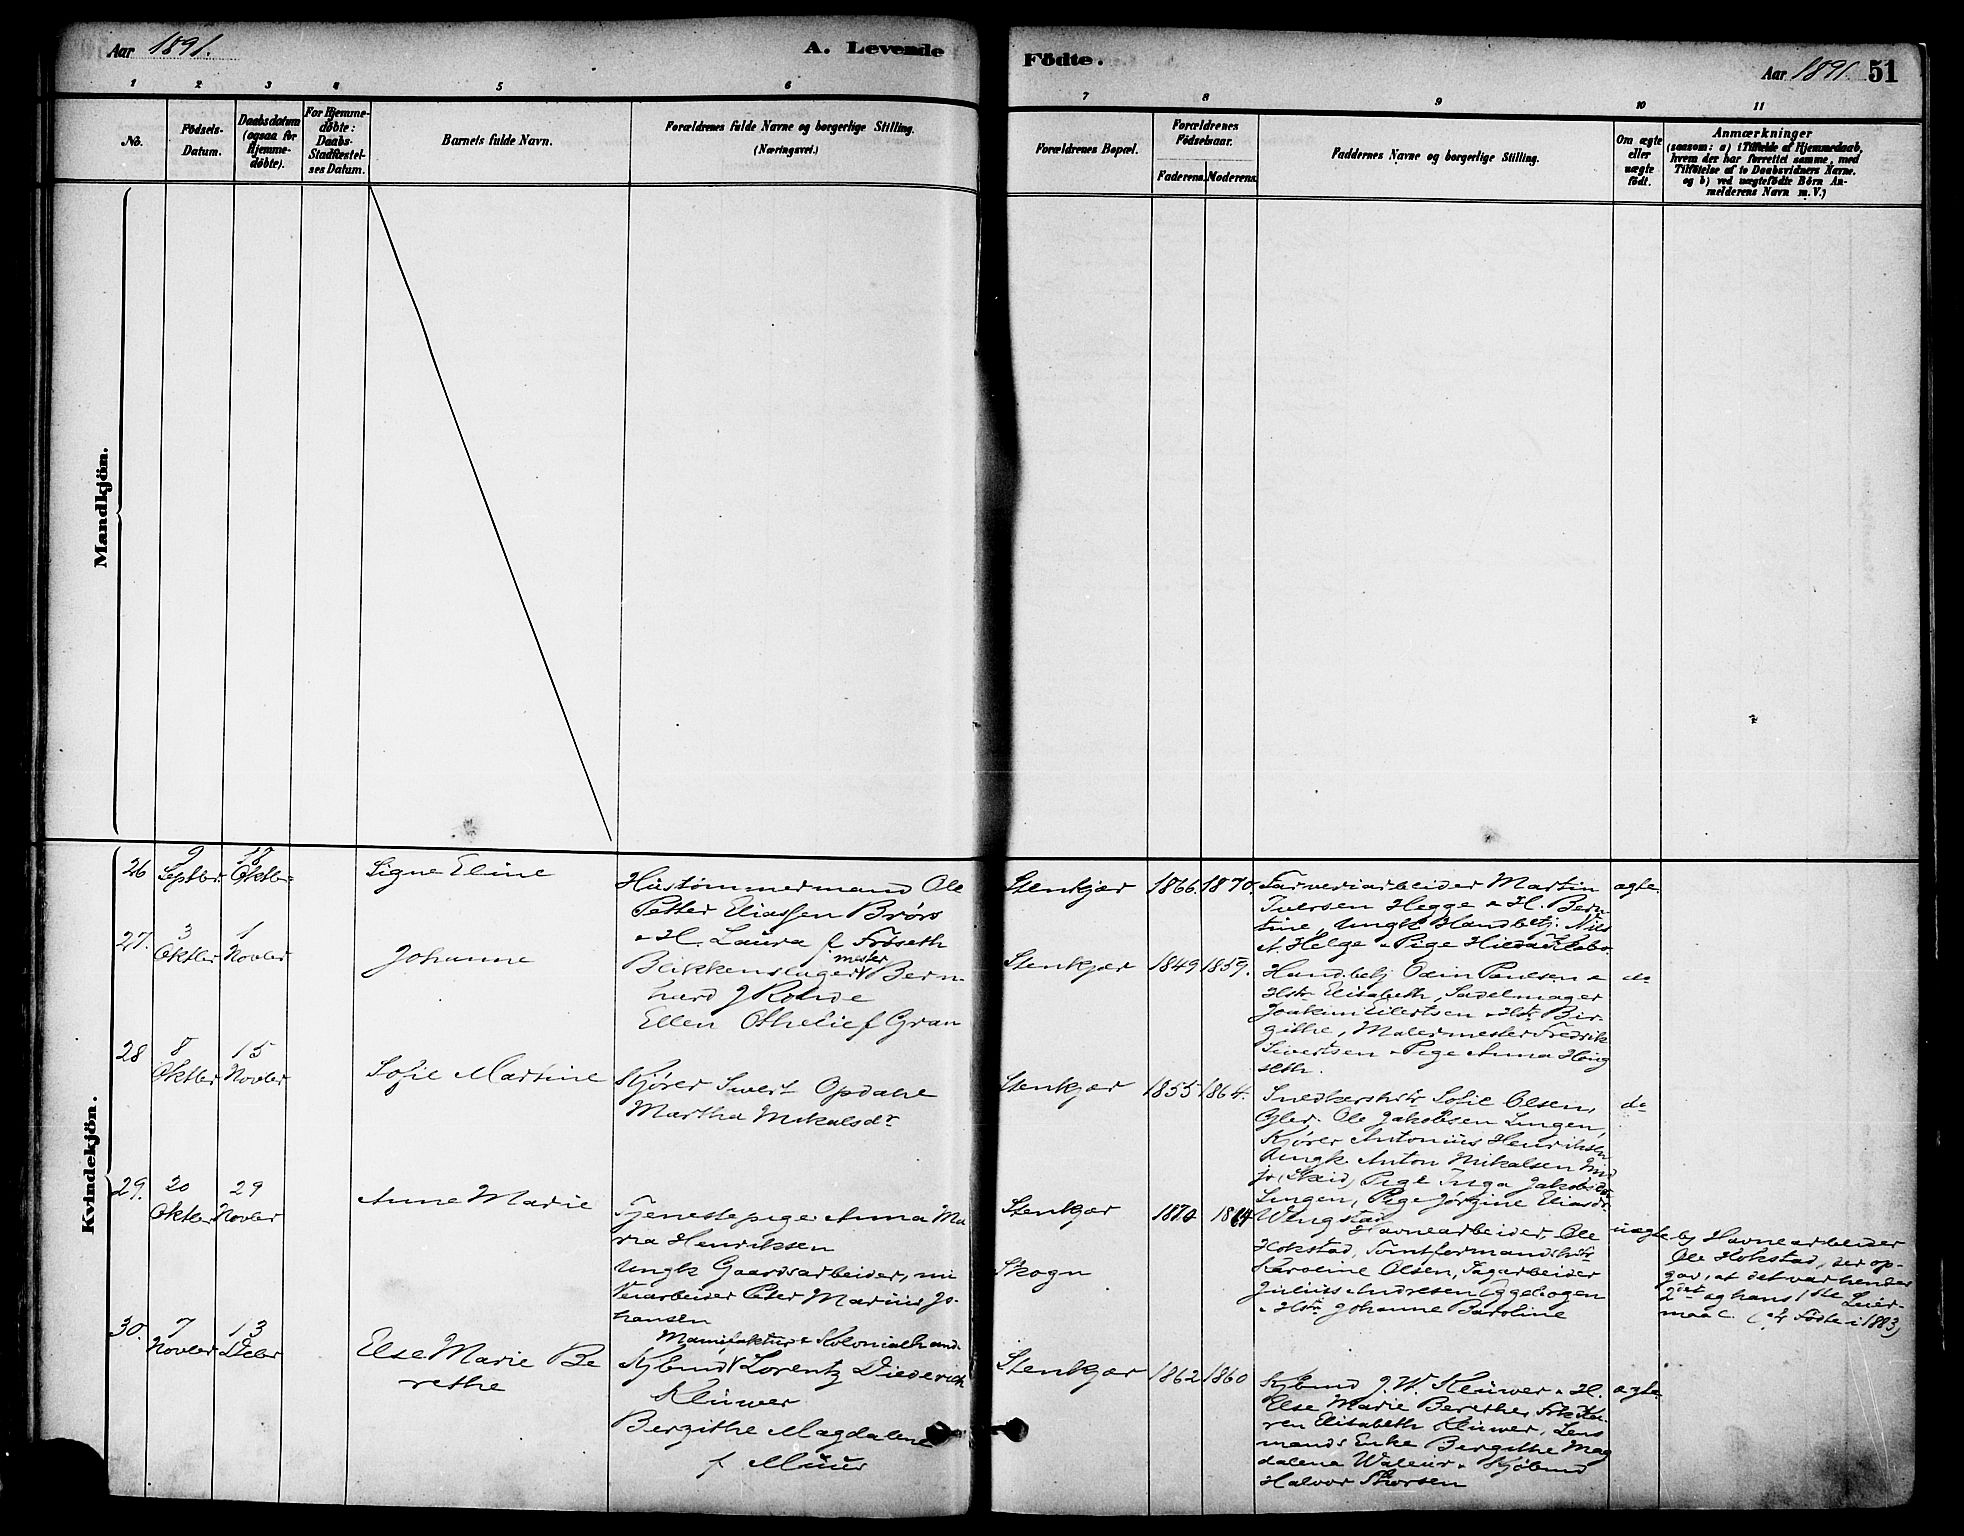 Aar 1891.
A. Levende
Födte.
Aar 1891. 51
1 2 3 4 5 6 7 8 9 10 11
No.
Födsels-
Datum.
Daabsdatum
(ogsaa for
Hjemme-
döbte).
For Hjemme-
döbte:
Daabs-
Stadfæstel-
ses Datum.
Barnets fulde Navn.
Forældrenes fulde Navne og borgerlige Stilling.
(Næringsvei.)
Forældrenes Bopæl.
Forældrenes
Födselsaar.
Faderens. Moderens.
Faddernes Navne og borgerlige Stilling.
Om ægte
eller
uægte
födt.
Anmærkninger
(saasom: a) i Tilfælde af Hjemmedaab,
hvem der har forrettet samme, med
Tilföielse af to Daabsvidners Navne,
og b) ved uægtefödte Börn An-
melderens Navn m. V.)
Mandkjön.
Kvindekjön.
26
9
Septber.
18
Oktbr.
Signe Eline
Hüstømmermand Ole
Petter Eliassen Brørs
& H. Laura f Frøseth
Stenkjær
1866
1870.
Farveriarbeider Martin
Iversen Hegge & H. Bern-
tine, Ungk Handbetj. Nils
A. Helge & Pige Hilda
ægte.
27.
3
Oktber
1
Novber
Johanne
Blikkenslagermester Bern-
hard J Rohde
Ellen Othelie f Gran
Stenkjær
1849
1859.
Handbetj Odin Paulsen &
Hstr Elisabeth, Sadelmager
Joakim Eilertsen & Hstr Bir-
githe, Malermester Fredrik
Sivertsen & Pige Anna Høug
seth.
do
28
8
Oktber
15
Novber
Sofie Martine
Kjører Sivert Opdahl
Martha Mikalsdr
Stenkjær
1855
1864.
Snedkerhstr Sofie Olsen,
Ole Jakobsen Lungen,
Kjører Antonius Henriksen
Ungk Anton Mikalsen
Pige Inga Jakobsdtr
Lungen, Pige Jørgine Eliasdr
Wingstad
do
29.
20
Oktber
29
Novber
Anne Marie
Tjenestepige Anna Ma
ria Henriksen
Ungk Gaardsarbeider, nu
arbeider Peter Marius Jo-
hansen
Stenkjær
Skogn
1870
1864
Havnearbeider Ole
Hokstad, Tomtformandshstr
Karoline Olsen, Sagarbeider
Julius Andresen Eggebogen
& Hstr Johanne Caroline
uægte
b) Havnearbeider
Ole Hokstad, der op-
gav, at det var hendes
2det og hans 1ste Leier-
maal. (af Födte i 1883)
30.
7
Novber
13
Dcbr
Else Marie Be
rethe
Manufaktur & Kolonialhand.
Kjbmd Lorentz Diederich
Klüwer
Bergithe Magdalene
f. Müur
Stenkjær
1862
1860
Kjbmd J. W. Klüwer & H.
Else Marie Berethe, Frk Ka-
ren Elisabeth Klüwer, Lens
mands Enke Bergithe Mag
dalena Waleur & Kjøbmd
Halvor Thorsen
ægte